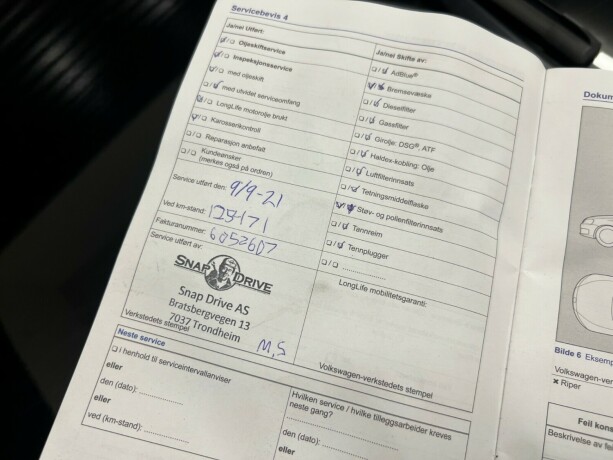 Servicebevis 4
Ja/nei Utført:
Oljeskiftservice
Inspeksjonsservice
med oljeskift
med utvidet serviceomfang
LongLife motorolje brukt
Karosserikontroll
Reparasjon anbefalt
Kundeønsker
(merkes også på ordren)
Service utført den: 9/9-21
Ved km-stand:
Fakturanummer: 6052607
Service utført av:
SNAP DRIVE
Snap Drive AS
Bratsbergvegen 13
7037 Trondheim
M,S
Verkstedets stempel
Ja/nei Skifte av:
AdBlue®
Bremsevæske
Dieselfilter
Gassfilter
Girolje: DSG®, ATF
Haldex-kobling: Olje
Luftfilterinnsats
Tetningsmiddelflaske
Støv- og pollenfilterinnsats
Tannreim
Tennplugger
LongLife mobilitetsgaranti:
Volkswagen-verkstedets stempel
Neste service
i henhold til serviceintervallanviser
eller
den (dato):
eller
ved (km-stand):
Hvilken service / hvilke tilleggsarbeider kreves
neste gang?
den (dato):
eller
Dokum
Bilde 6 Eksemp
Volkswagen-ver
× Riper
Feil kons
Beskrivelse av fei